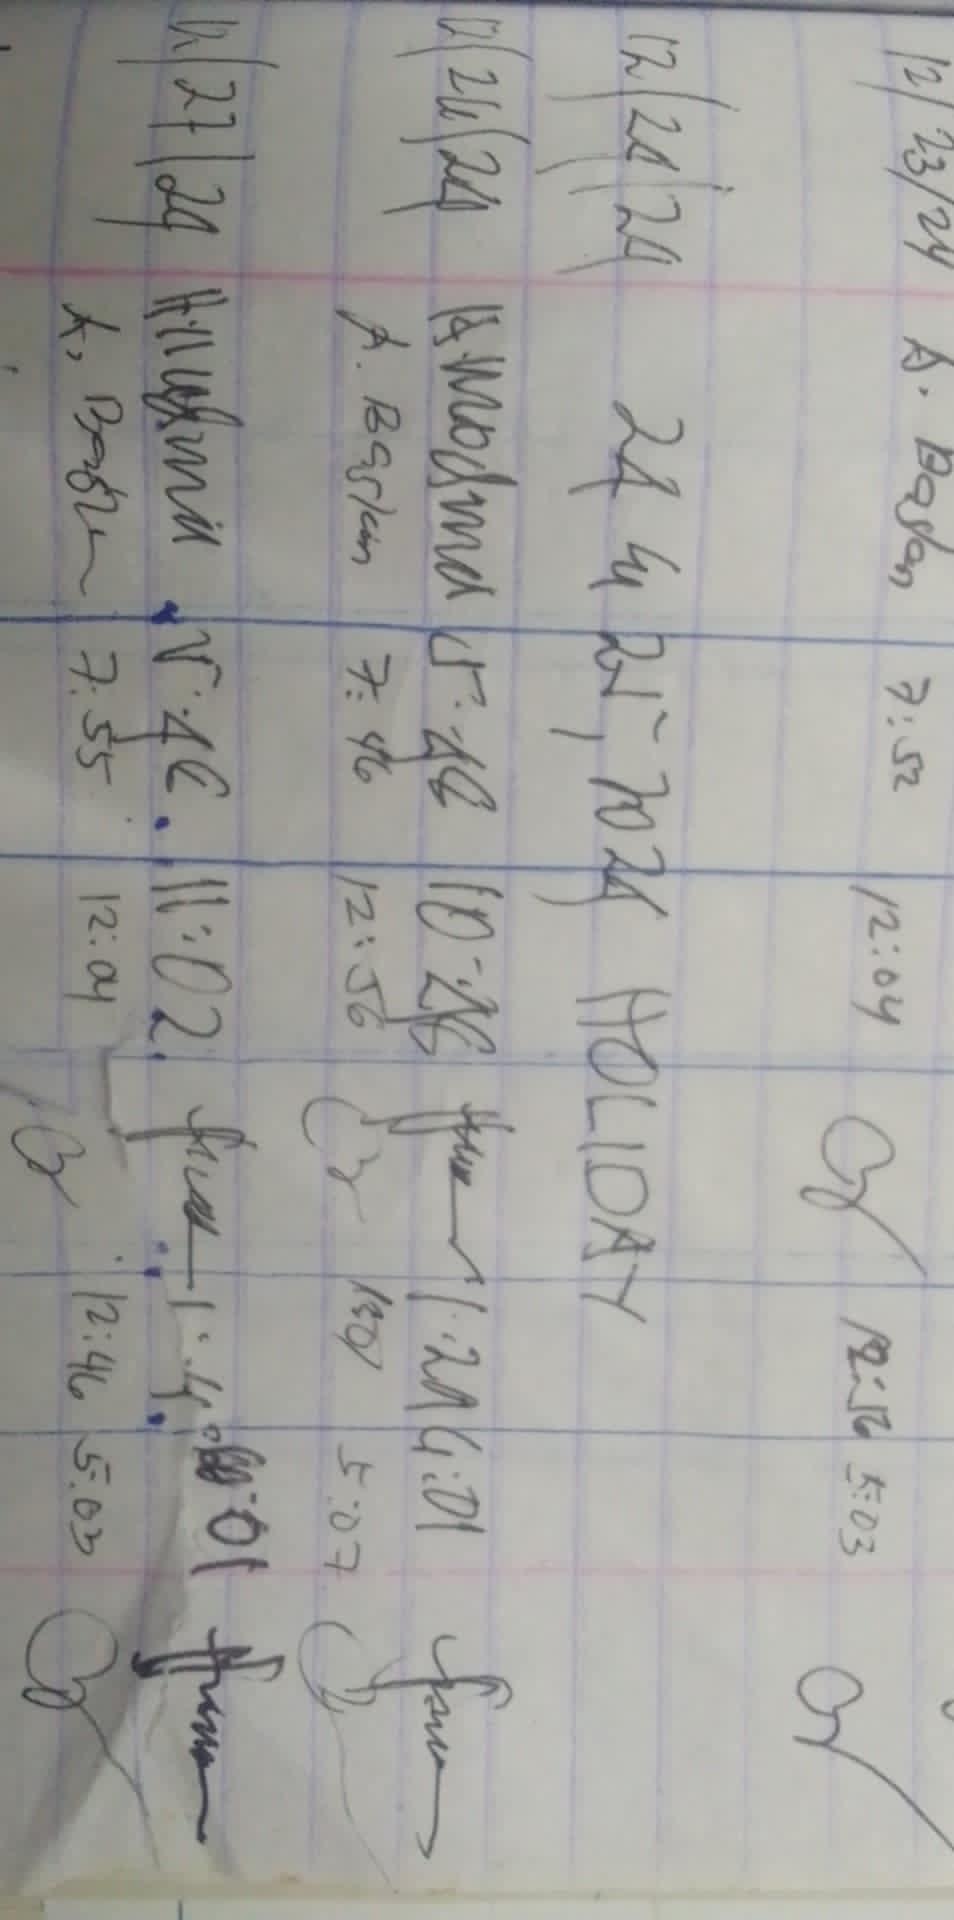 12/23/24 A. Baslan 7:52 12:04 12:56 5:03
12/24/24 24 4 25, 2024 HOLIDAY
12/26/24 5:46 10:26 1:24 4:01
A. Baslan 7:46 12:56 1:07 5:07
12/27/24 5:46 11:02 :01
A. 7:55 12:04 12:46 5:03